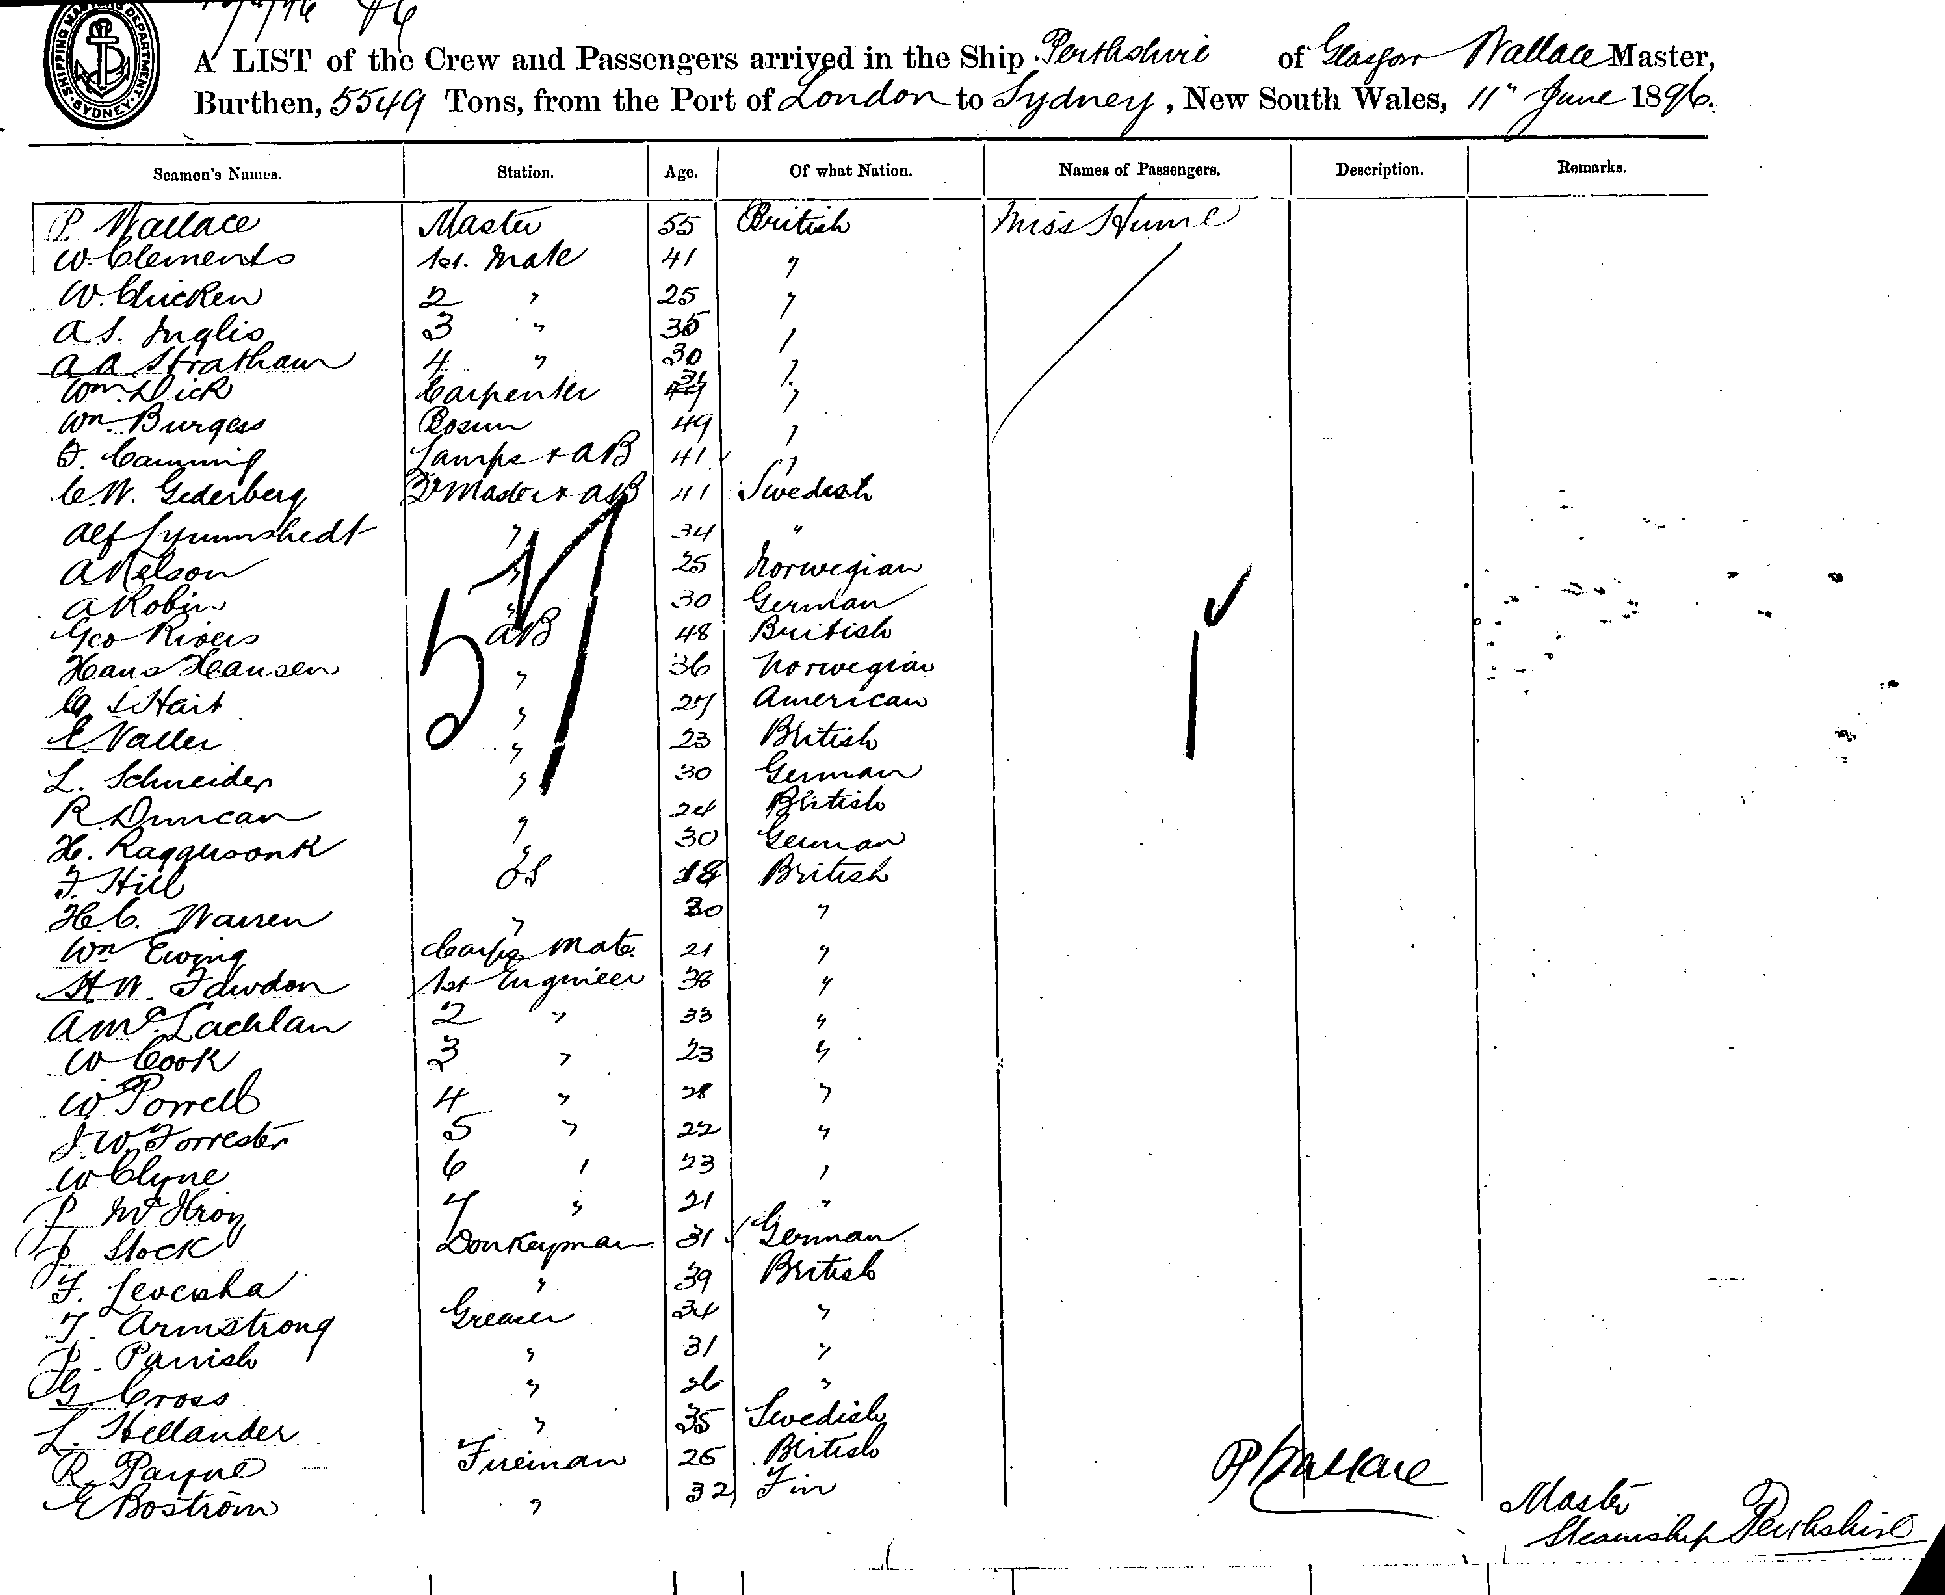 SHIPPING MASTERS DEPARTMENT SYDNEY
A LIST of the Crew and Passengers arrived in the Ship Perthshire of Glasgow Wallace Master,
Burthen, 5549 Tons, from the Port of London to Sydney, New South Wales, 11" June 1896.
Seamen's Names. Station. Age. Of what Nation. Names of Passengers. Description. Remarks.
P. Wallace Master 55 British Miss Hume
W. Clements 1st. Mate 41 "
W. Chicken 2 " 25 "
A S. Inglis 3 " 35 "
A A Strathairn 4 " 30 "
Wm. Dick Carpenter "
Wm. Burgess Bosun 49 "
Lamps + AB 41 "
C.W. Gederberg Qr Master + AB 41 Swedish
Alf " 34 "
A Nelson " 25 Norwegian
A Robin " 30 German
Geo Rivers AB 48 British
Hans Hansen " 36 Norwegian
C S Hart " 27 American
E Valler " 23 British
L. Schneider " 30 German
R. Duncan " 24 British
H. Raggusonk " 30 German
F. Hill OS 18 British
H.C. Warren " 30 "
Wm Ewing Carps Mate. 21 "
H W. Fawdon 1st Engineer 38 "
A McLachlan 2 " 33 "
W Cook 3 " 23 "
W Porrell 4 " 28 "
J. W. Forrester 5 " 22 "
W Clyne 6 " 23 "
P McIlroy 7 " 21 "
J Stock Donkeyman 31 German
F. " 39 British
T. Armstrong Greaser 34 "
P. Parrish " 31 "
G Cross " 26 "
L. Hellander " 35 Swedish
R. Payne Fireman 26 British
E Boström " 32 Fin
57
1
P Wallace
Master
Steamship Perthshire